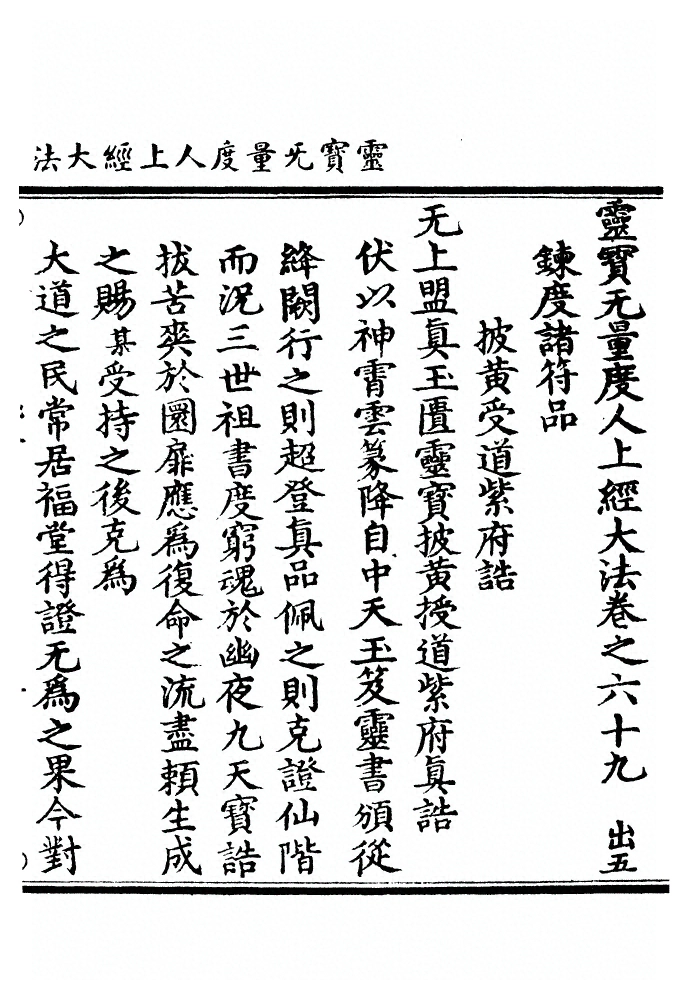 靈寶无量度人上經大法
靈寶无量度人上經大法卷之六十九 出五
鍊度諸符品
披黃受道紫府誥
无上盟眞玉匱靈寶披黃授道紫府眞誥
伏以神霄雲篆降自中天玉笈靈書頒從
絳闕行之則超登眞品佩之則克證仙階
而況三世祖書度窮魂於幽夜九天寶誥
拔苦爽於圜扉應爲復命之流盡賴生成
之賜某受持之後克爲
大道之民常居福堂得證无爲之果今對